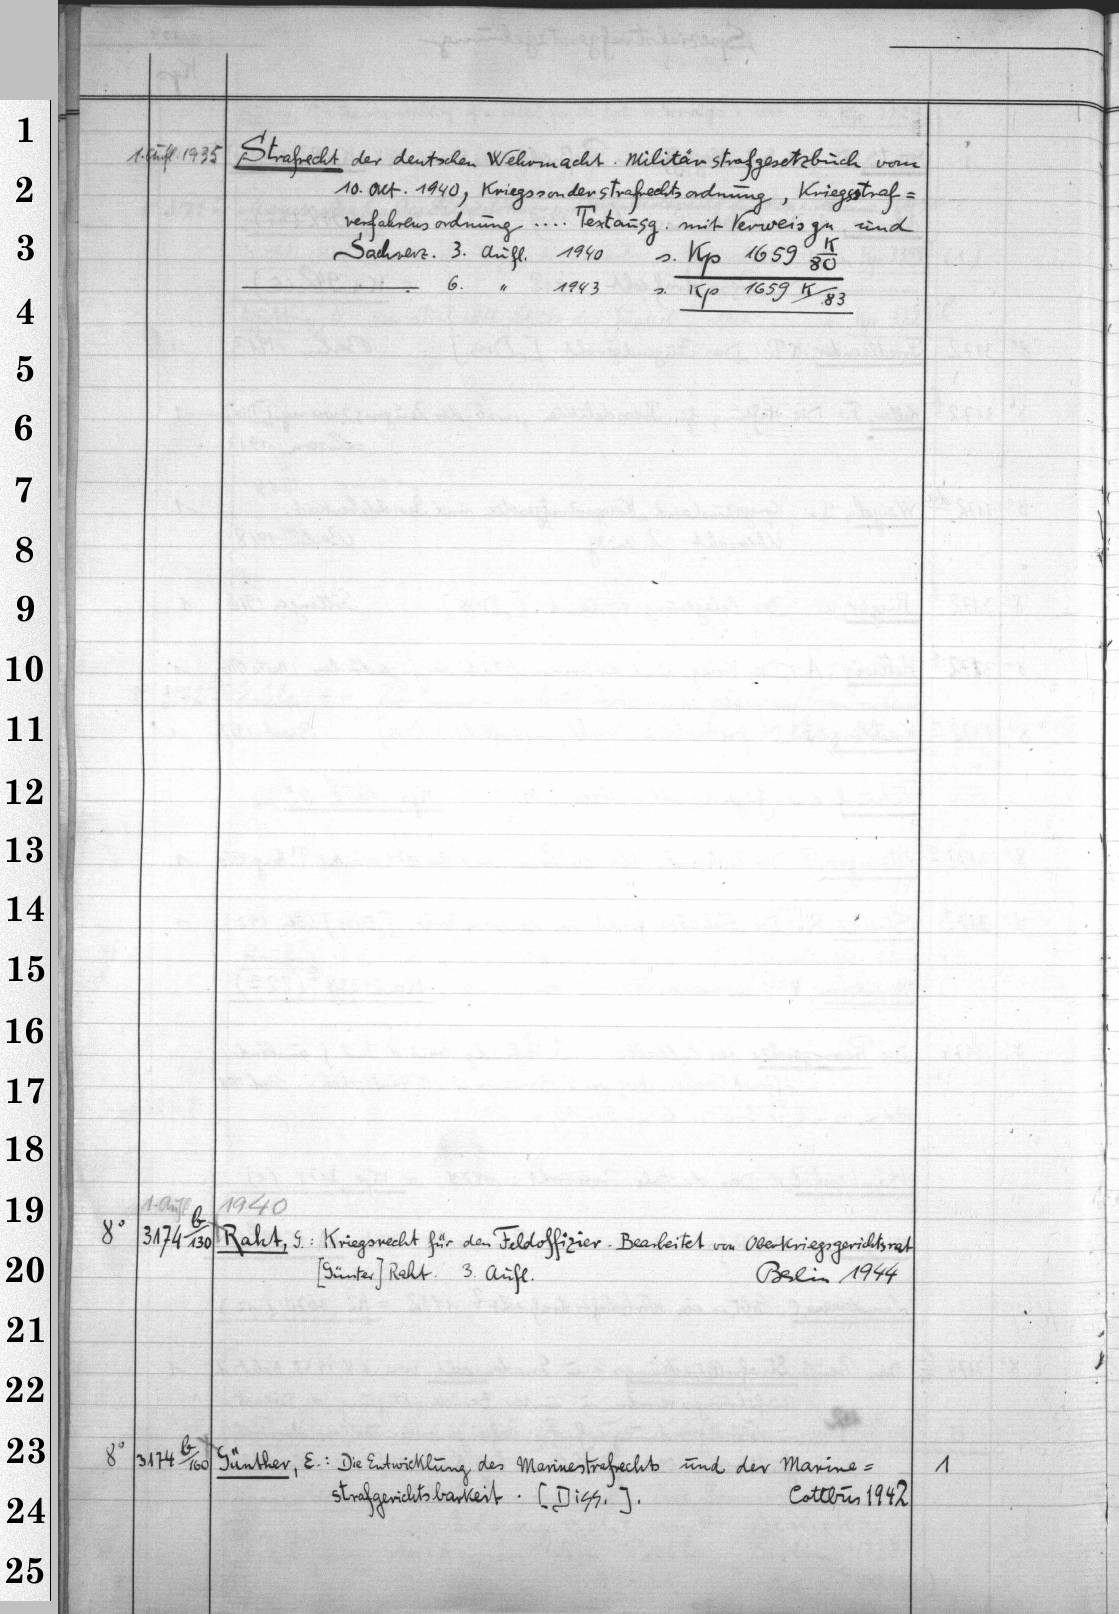 1
1. Aufl. 1935 Strafrecht der deutschen Wehrmacht. Militärstrafgesetzbuch vom
2 10. Okt. 1940, Kriegssonderstrafrechtsordnung, Kriegsstraf=
verfahrensordnung .... Textausg. mit Verweisgn und
3 Sachverz. 3. Aufl. 1940 s. Kp 1659 K/80
6. " 1943 s. Kp 1659 K/83
4
5
6
7
8
9
10
11
12
13
14
15
16
17
18
19 1. Aufl. 1940
8° 3174 b/130 Raht, G.: Kriegsrecht für den Feldoffizier. Bearbeitet von Oberkriegsgerichtsrat
20 [Günter] Raht. 3. Aufl. Berlin 1944
21
22
23 8° 3174 b/160 Günther, E.: Die Entwicklung des Marinestrafrechts und der Marine= 1
24 strafgerichtsbarkeit. [Diss.]. Cottbus 1942
25